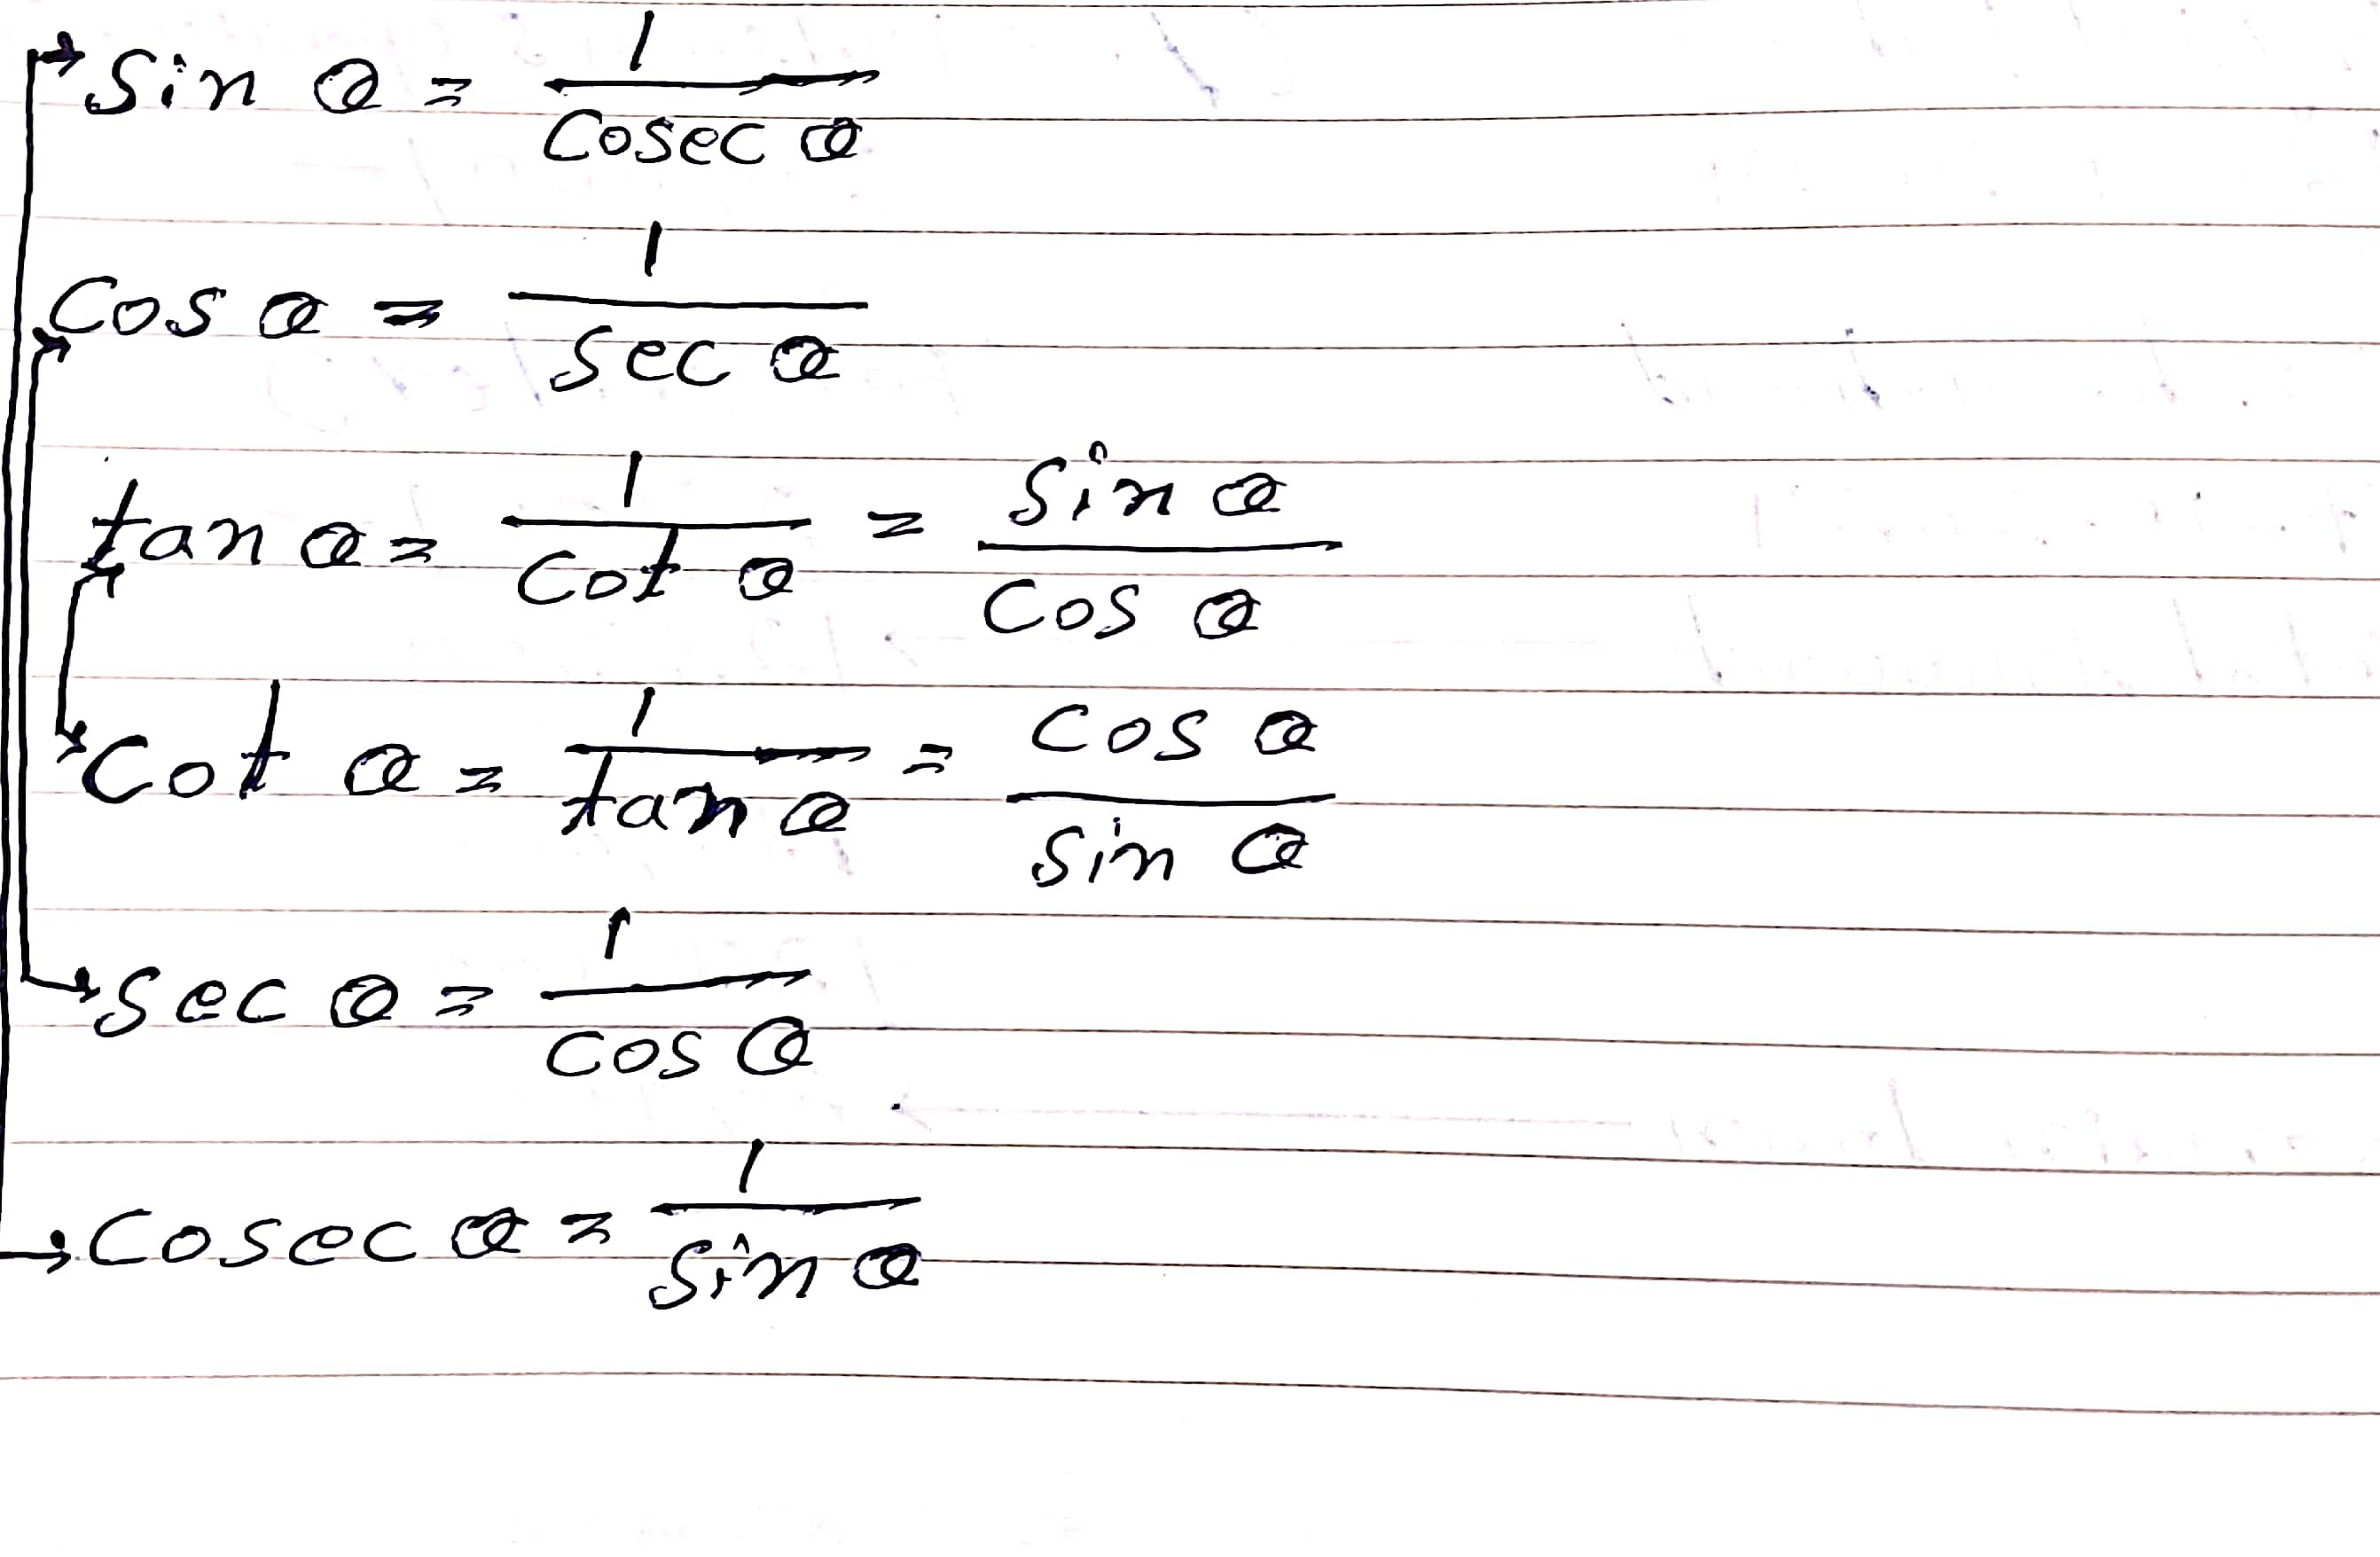 Sin θ = 1 / Cosec θ
Cos θ = 1 / Sec θ
tan θ = 1 / Cot θ = Sin θ / Cos θ
Cot θ = 1 / tan θ = Cos θ / Sin θ
Sec θ = 1 / Cos θ
Cosec θ = 1 / Sin θ